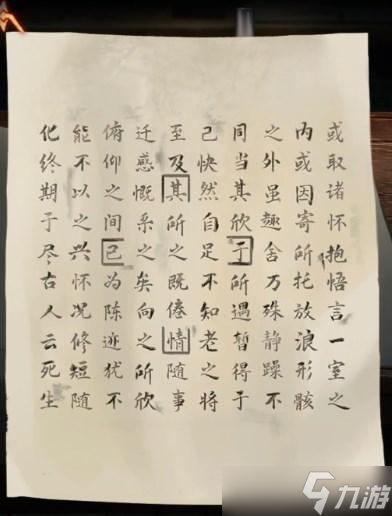 或取诸怀抱悟言一室之
内或因寄所托放浪形骸
之外虽趣舍万殊静躁不
同当其欣于所遇暂得于
己快然自足不知老之将
至及其所之既倦情随事
迁感慨系之矣向之所欣
俯仰之间已为陈迹犹不
能不以之兴怀况修短随
化终期于尽古人云死生
九游